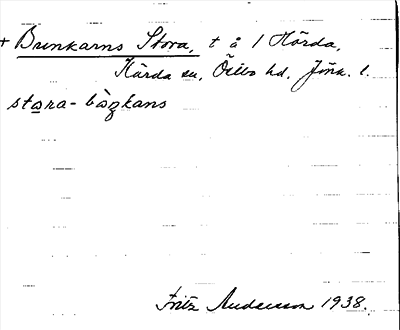 + Bunkarns Stora, t å 1 Hörda,
Kärda sn, Östbo hd, Jönk. l.
stora - båŋkans
Fritz Andersson 1938.